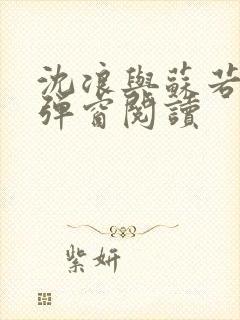 沈浪與蘇若
彈窗閱讀
紫妍